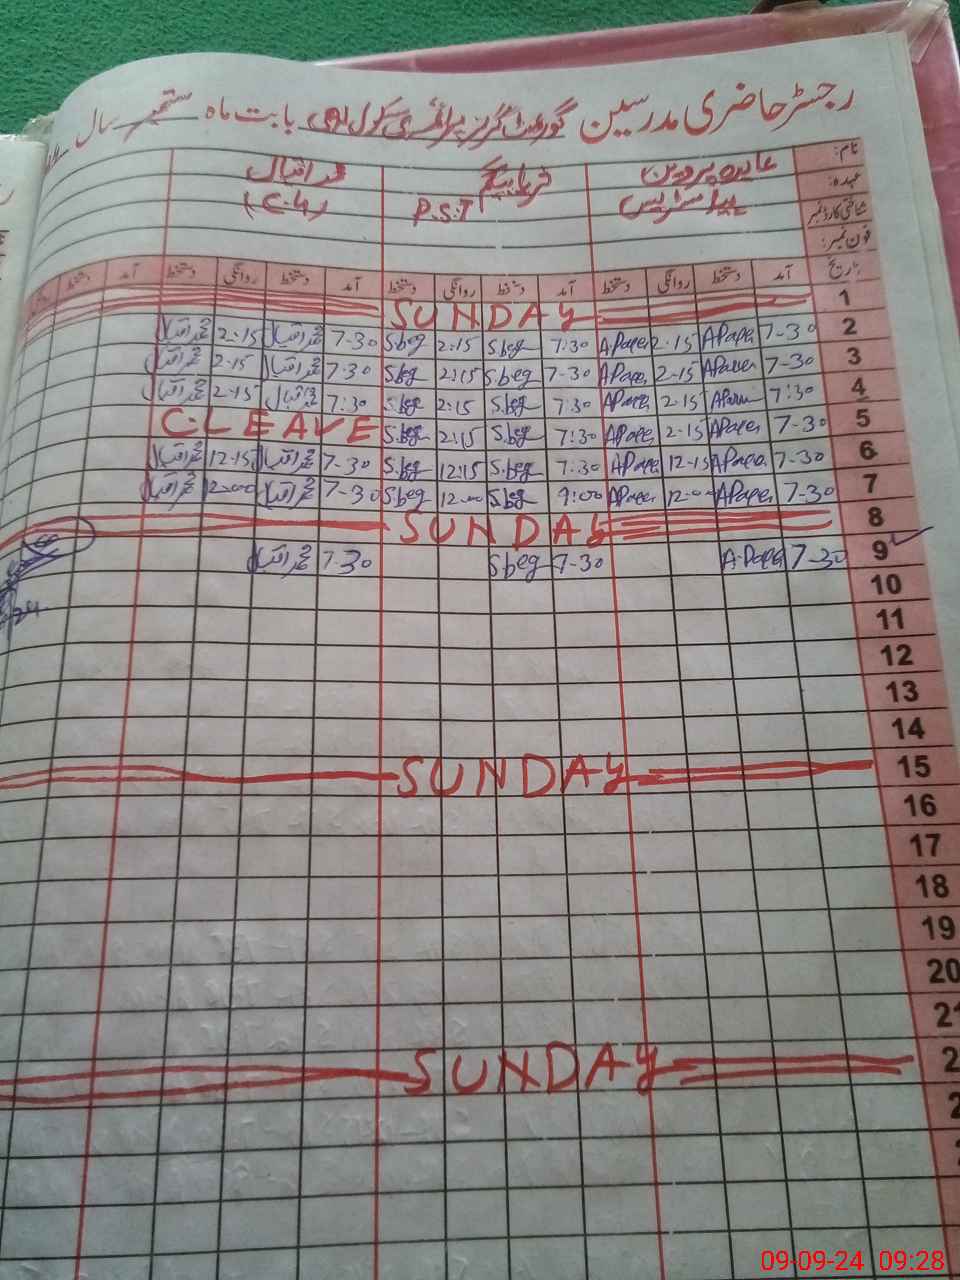 رجسٹر حاضری مدرسین گورنمنٹ گرلز پرائمری سکول بابت ماہ ستمبر سال
نام: عابدہ پروین ثریا بیگم محمد اقبال
عہدہ: ہیڈ مسٹریس P.S.T (C-4)
شناختی کارڈ نمبر
فون نمبر:
تاریخ آمد دستخط روانگی دستخط آمد دستخط روانگی دستخط آمد دستخط روانگی دستخط آمد دستخط روانگی
1 SUNDAY
2 7-30 A.Parveen 2-15 A.Parveen 7:30 S.beg 2:15 S.beg 7-30 محمد اقبال 2-15 محمد اقبال
3 7-30 A.Parveen 2-15 A.Parveen 7-30 S.beg 2:15 S.beg 7-30 محمد اقبال 2-15 محمد اقبال
4 7:30 2-15 7:30 S.beg 2:15 S.beg 7:30 محمد اقبال 2-15 محمد اقبال
5 7-30 2-15 7:30 S.beg 2:15 S.beg C-LEAVE
6 7-30 12-15 7:30 S.beg 12:15 S.beg 7-30 محمد اقبال 12-15 محمد اقبال
7 7-30 12-00 S.beg 12-00 S.beg 7-30 محمد اقبال 12-00 محمد اقبال
8 SUNDAY
9 7-30 7-30 S.beg 7-30 محمد اقبال
10
11
12
13
14
15 SUNDAY
16
17
18
19
20
21
2 SUNDAY
2
2
09-09-24 09:28